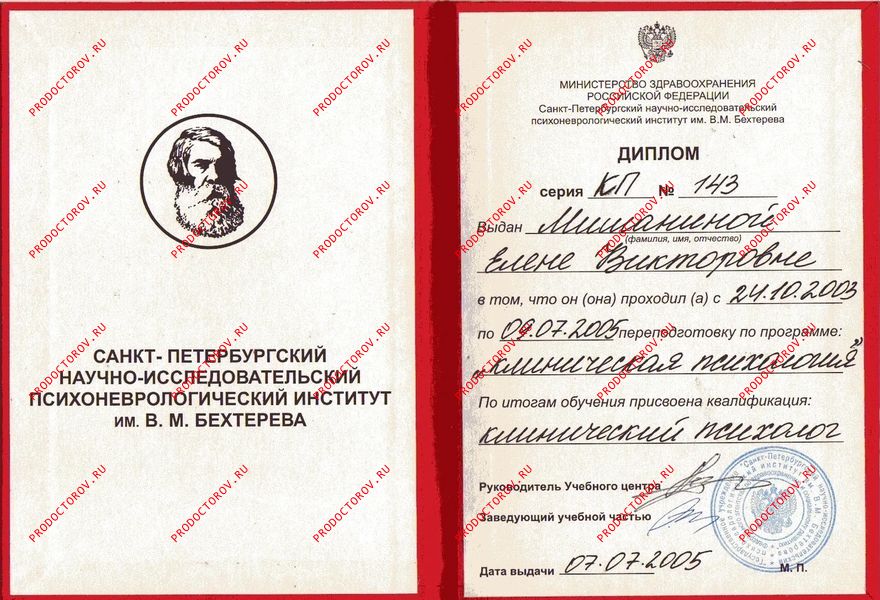 САНКТ- ПЕТЕРБУРГСКИЙ
НАУЧНО-ИССЛЕДОВАТЕЛЬСКИЙ
ПСИХОНЕВРОЛОГИЧЕСКИЙ ИНСТИТУТ
ИМ. В. М. БЕХТЕРЕВА
МИНИСТЕРСТВО ЗДРАВООХРАНЕНИЯ
РОССИЙСКОЙ ФЕДЕРАЦИИ
Санкт-Петербургский научно-исследовательский
психоневрологический институт им. В.М. Бехтерева
ДИПЛОМ
серия КП № 143
Выдан Мишаниной
(фамилия, имя, отчество)
Елене Викторовне
в том, что он (она) проходил (а) с 24.10.2003
по 09.07.2005 переподготовку по программе:
«клиническая психология»
По итогам обучения присвоена квалификация:
клинический психолог
Руководитель Учебного центра
Заведующий учебной частью
Дата выдачи 07.07.2005 М. П.
PRODOCTOROV.RU